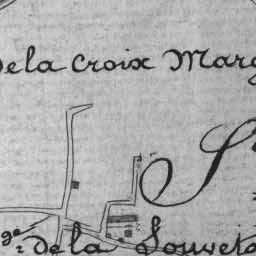 de la Croix Marg
S
ge: de la Louveto